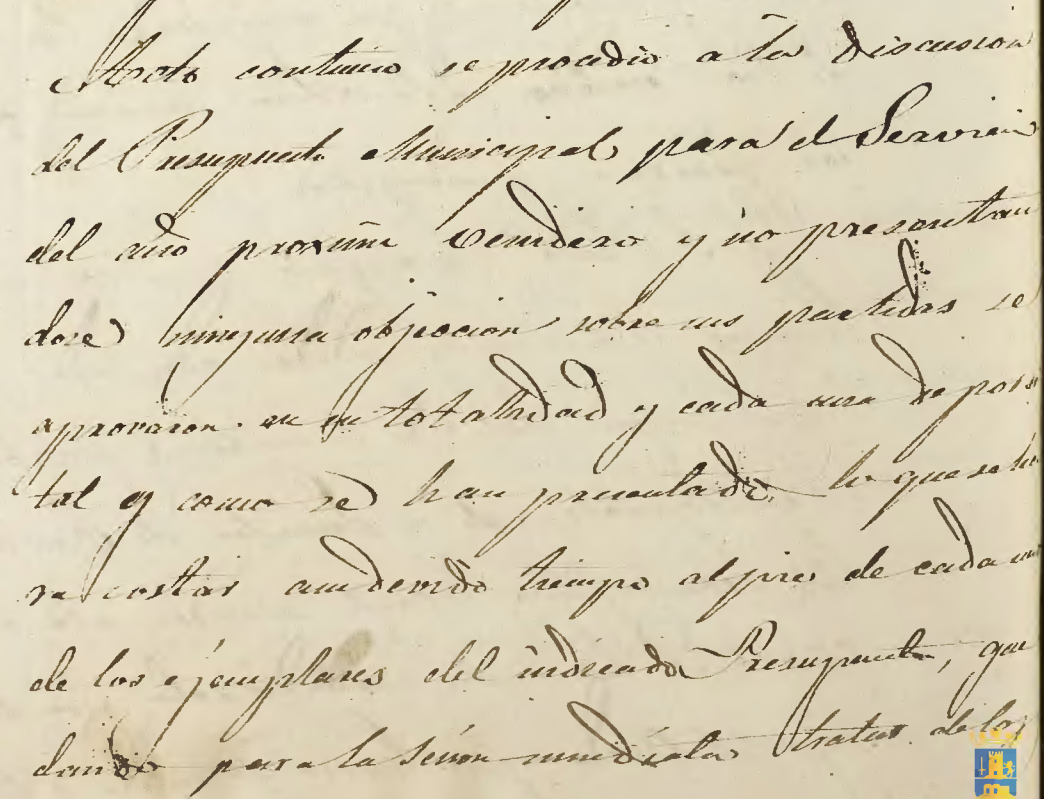 Acto continuo se procedio a la discusion
del Presupuesto Municipal para el Servicio
del año proximo venidero y no presentan
dose ninguna objecion sobre sus partidas se
aprovaron en su totalidad y cada una de por si
tal y como se han presentado, lo que se ha
ra costar a su devido tiempo al pie de cada uno
de los ejemplares del indicado Presupuesto, que
dando para la sesion inmediata tratar de la